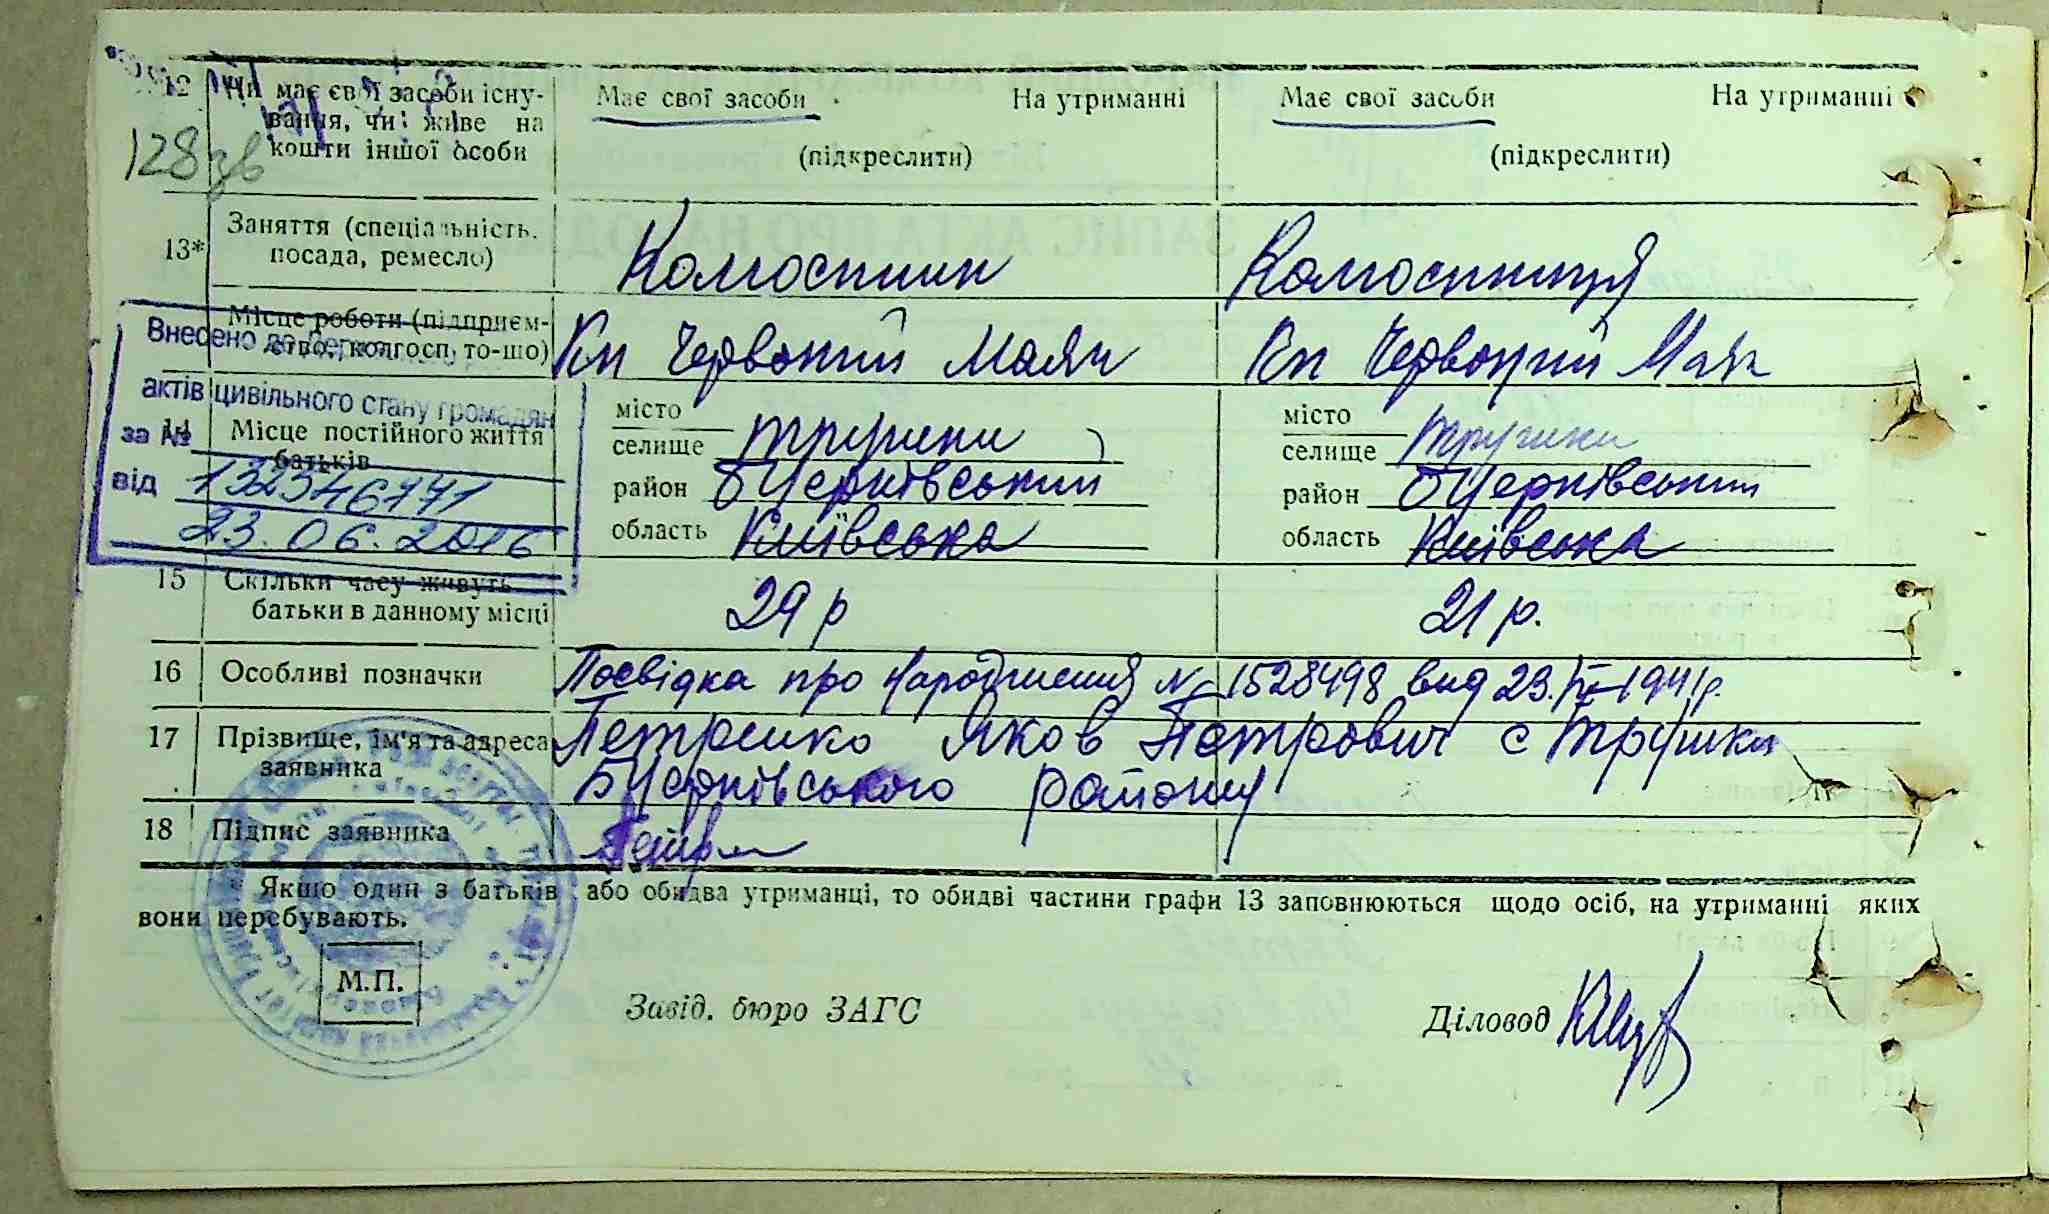 12 Чи має свої засоби існу- Має свої засоби На утриманні Має свої засоби На утриманні
вання, чи живе на
кошти іншої особи (підкреслити) (підкреслити)
128 зв
13* Заняття (спеціальність.
посада, ремесло) Колгоспник Колгоспниця
Місце роботи (підприєм-
ство, колгосп, то-що) Кп Червоний Маяк Кп Червоний Маяк
Внесено до
актів цивільного стану громадян
за № 132346771
від 23.06.2016
14 Місце постійного життя
батьків
місто місто
селище Трушки селище Трушки
район БЦерківський район БЦерківський
область Київська область Київська
15 Скільки часу живуть
батьки в данному місці 29 р 21 р.
16 Особливі позначки Посвідка про народження № 1528498 вид 23. 1941р.
17 Прізвище, ім'я та адреса Петренко Яков Петрович с Трушки
заявника БЦерківського району
18 Підпис заявника
Якщо один з батьків або обидва утриманці, то обидві частини графи 13 заповнюються щодо осіб, на утриманні яких
вони перебувають.
М.П.
Завід. бюро ЗАГС Діловод